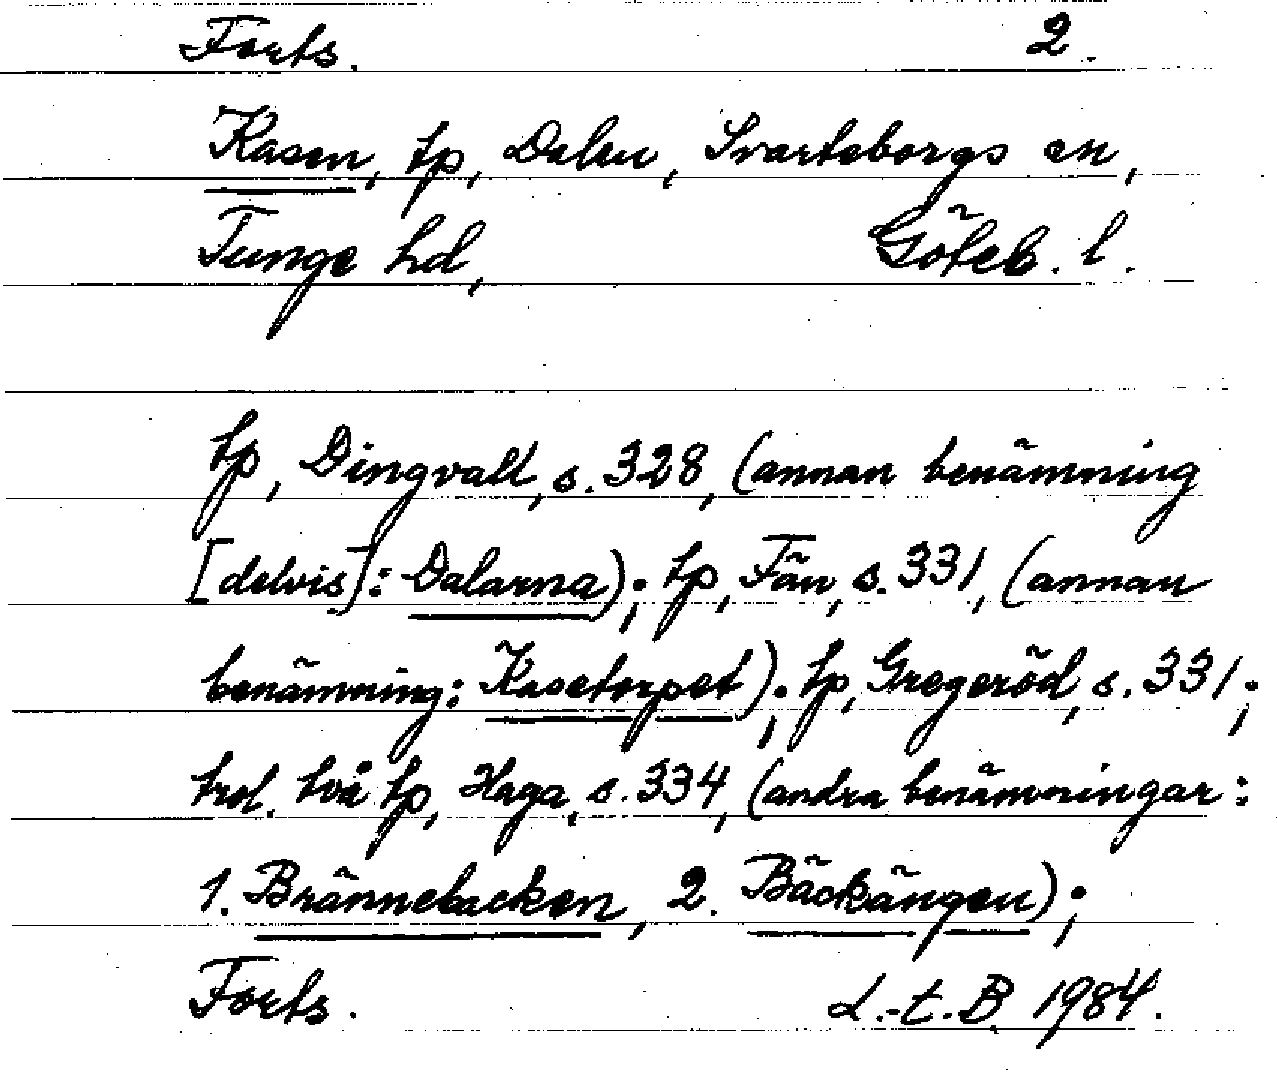 Forts. 2.
Kasen, tp, Dalen, Svarteborgs sn,
Tunge hd, Göteb. l.
tp, Dingvall, s. 328, (annan benämning
[delvis]: Dalarna); tp, Fän, s. 331, (annan
benämning: Kasetorpet); tp, Gregeröd, s. 331;
trol. två tp, Haga, s. 334, (andra benämningar:
1. Brännebacken, 2. Bäckängen);
Forts. L.-t. B. 1984.